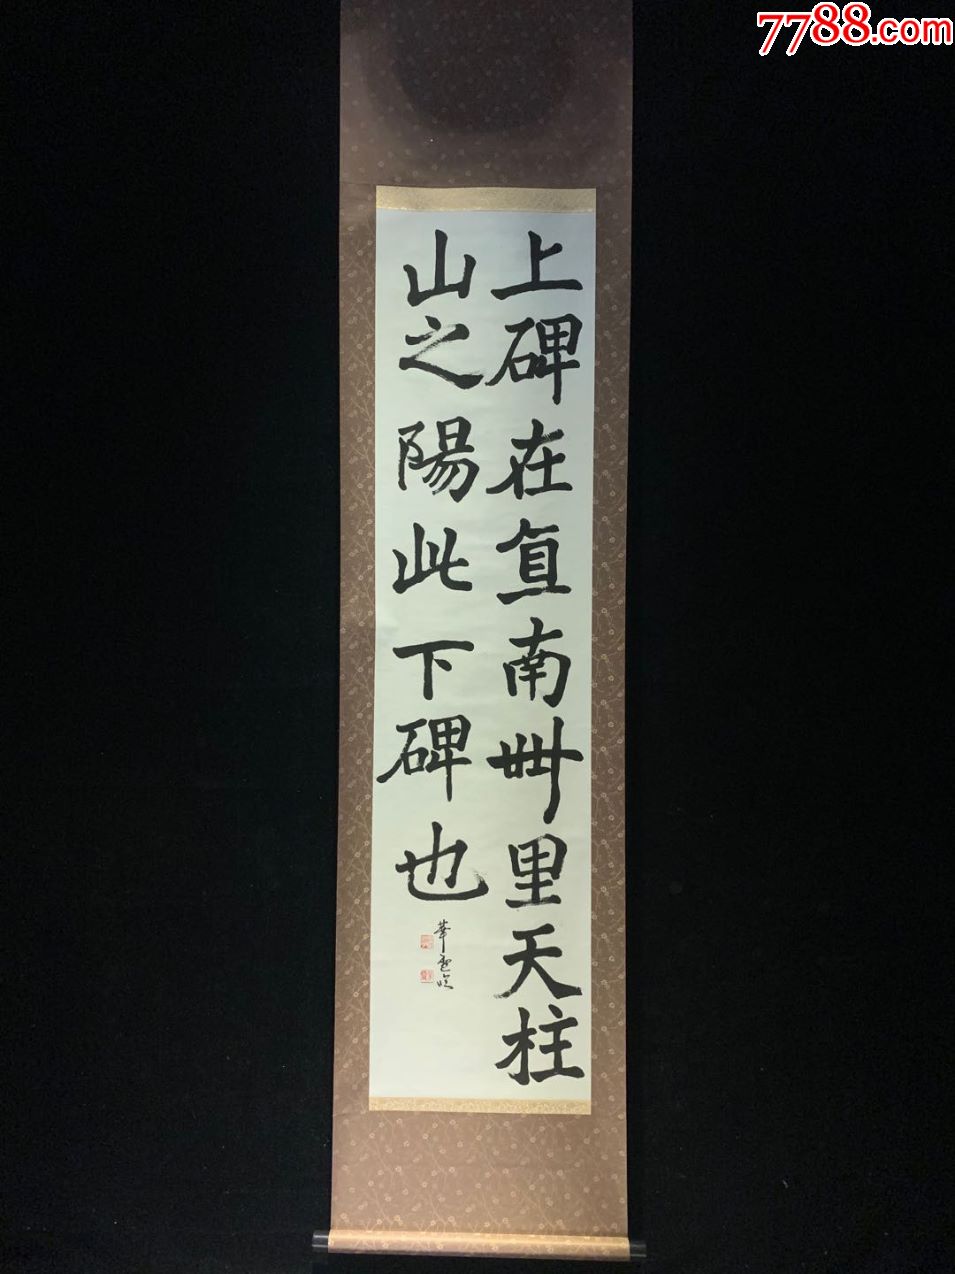 上碑在直南卌里天柱
山之陽此下碑也
7788.com